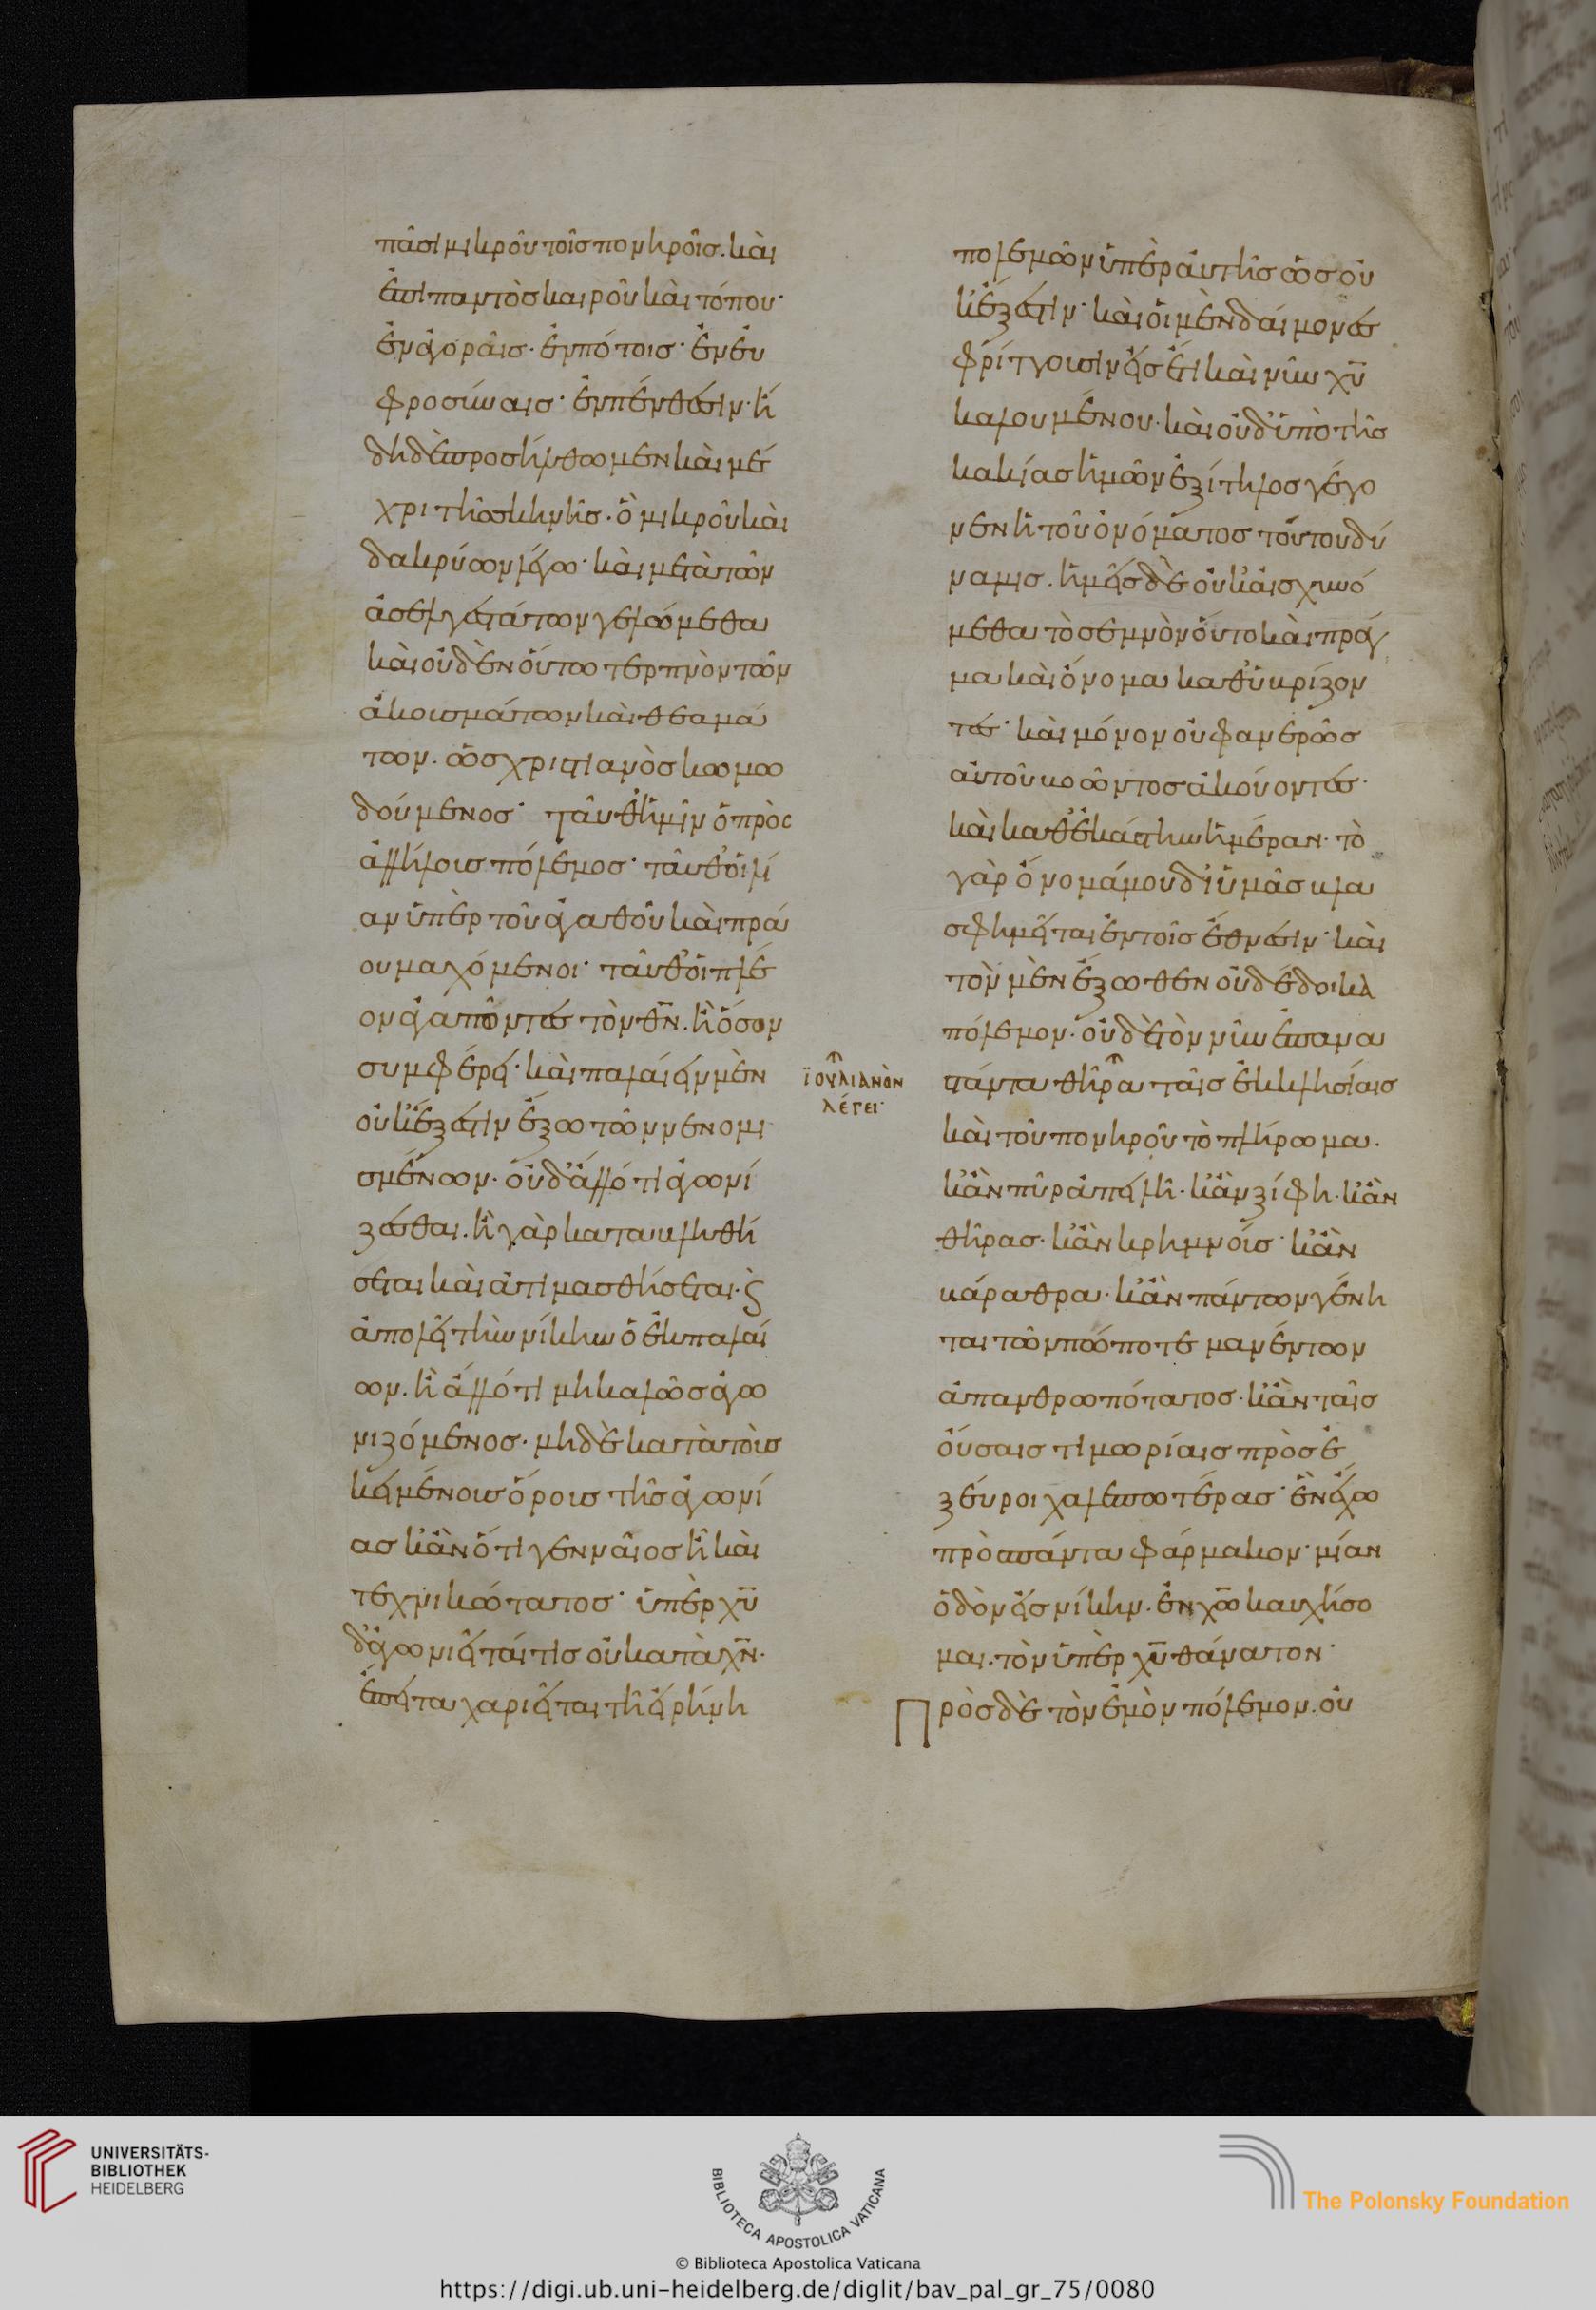 πᾶσι μικροῦ τοῖς πονηροῖς. καὶ
ἐπὶ παντὸς καιροῦ καὶ τόπου·
ἐν ἀγοραῖς· ἐν πότοις· ἐν εὐ
φροσύναις· ἐν πένθεσιν· ἤ
δη δὲ προσήλθωμεν καὶ μέ
χρι τῆς σκηνῆς. ὃ μικροῦ καὶ
δακρύων λέγω· καὶ μετὰ τῶν
ἀσελγεστάτων γελώμεθα
καὶ οὐδὲν οὕτω τερπνὸν τῶν
ἀκουσμάτων καὶ θεαμά
των. ὡς χριστιανὸς κωμω
δούμενος· ταῦθ' ἡμῖν ὁ πρὸς
ἀλλήλους πόλεμος· ταῦθ' οἱ λί
αν ὑπὲρ τοῦ ἀγαθοῦ καὶ πρά
ου μαχόμενοι· ταῦθ' οἱ πλέ
ον ἀγαπῶντες τὸν θ̅ν̅. ἢ ὅσον
συμφέρει· καὶ παλαίειν μὲν
οὐκ ἔξεστιν ἔξω τῶν νενομι
σμένων. οὐδ' ἄλλό τι ἀγωνί
ζεσθαι. ἢ γὰρ καταβληθή
σεται καὶ ἀτιμασθήσεται· ϛ̀
ἀπολεῖ τὴν νίκην ὁ ἐκπαλαί
ων. ἢ ἄλλό τι μὴ καλῶς ἀγω
νιζόμενος· μηδὲ κατὰ τοὺς
κειμένους ὅρους τῆς ἀγωνί
ας κἂν ὅτι γενναῖος ᾖ καὶ
τεχνικώτατος· ὑπὲρ χ̅υ̅
δ' ἀγωνιεῖταί τις οὐ κατὰ χ̅ν̅.
ἔπειτα χαριεῖται τῇ εἰρήνῃ
ἰουλιανὸν
λέγει·
πολεμῶν ὑπὲρ αὐτῆς ὡς οὐ
κ ἔξεστιν· καὶ οἱ μὲν δαίμονες
φρίττουσιν εἰς ἔτι καὶ νῦν χ̅υ̅
καλουμένου· καὶ οὐδ' ὑπὸ τῆς
κακίας ἡμῶν ἐξίτηλος γέγο
νεν ἡ τοῦ ὀνόματος τούτου δύ
ναμις. ἡμεῖς δὲ οὐκ αἰσχυνό
μεθα τὸ σεμνὸν οὕτο καὶ πρᾶγ
μα καὶ ὄνομα καθυβρίζον
τες· καὶ μόνον οὐ φανερῶς
αὐτοῦ βοῶντος ἀκούοντες·
καὶ καθ' ἑκάστην ἡμέραν· τὸ
γὰρ ὄνομά μου δι' ὑμᾶς βλα
σφημεῖται ἐν τοῖς ἔθνεσιν· καὶ
τὸν μὲν ἔξωθεν οὐ δέδοικα
πόλεμον· οὐδὲ τὸν νῦν ἐπανα
στάντα θῆρα ταῖς ἐκκλησίαις
καὶ τοῦ πονηροῦ τὸ πλήρωμα.
κἂν πῦρ ἀπειλῇ· κἂν ξίφη· κἂν
θῆρας· κἂν κρημνούς· κἂν
βάραθρα· κἂν πάντων γένη
ται τῶν πώποτε μανέντων
ἀπανθρωπότατος· κἂν ταῖς
οὔσαις τιμωρίαις προσε
ξεύροι χαλεπωτέρας· ἓν ἔχω
πρὸς πάντα φάρμακον· μίαν
ὁδὸν εἰς νίκην· ἐν χ̅ω̅ καυχήσο
μαι. τὸν ὑπὲρ χ̅υ̅ θάνατον·
Πρὸς δὲ τὸν ἐμὸν πόλεμον. οὐ
UNIVERSITÄTS-
BIBLIOTHEK
HEIDELBERG
BIBLIOTECA APOSTOLICA VATICANA
© Biblioteca Apostolica Vaticana
The Polonsky Foundation
https://digi.ub.uni-heidelberg.de/diglit/bav_pal_gr_75/0080